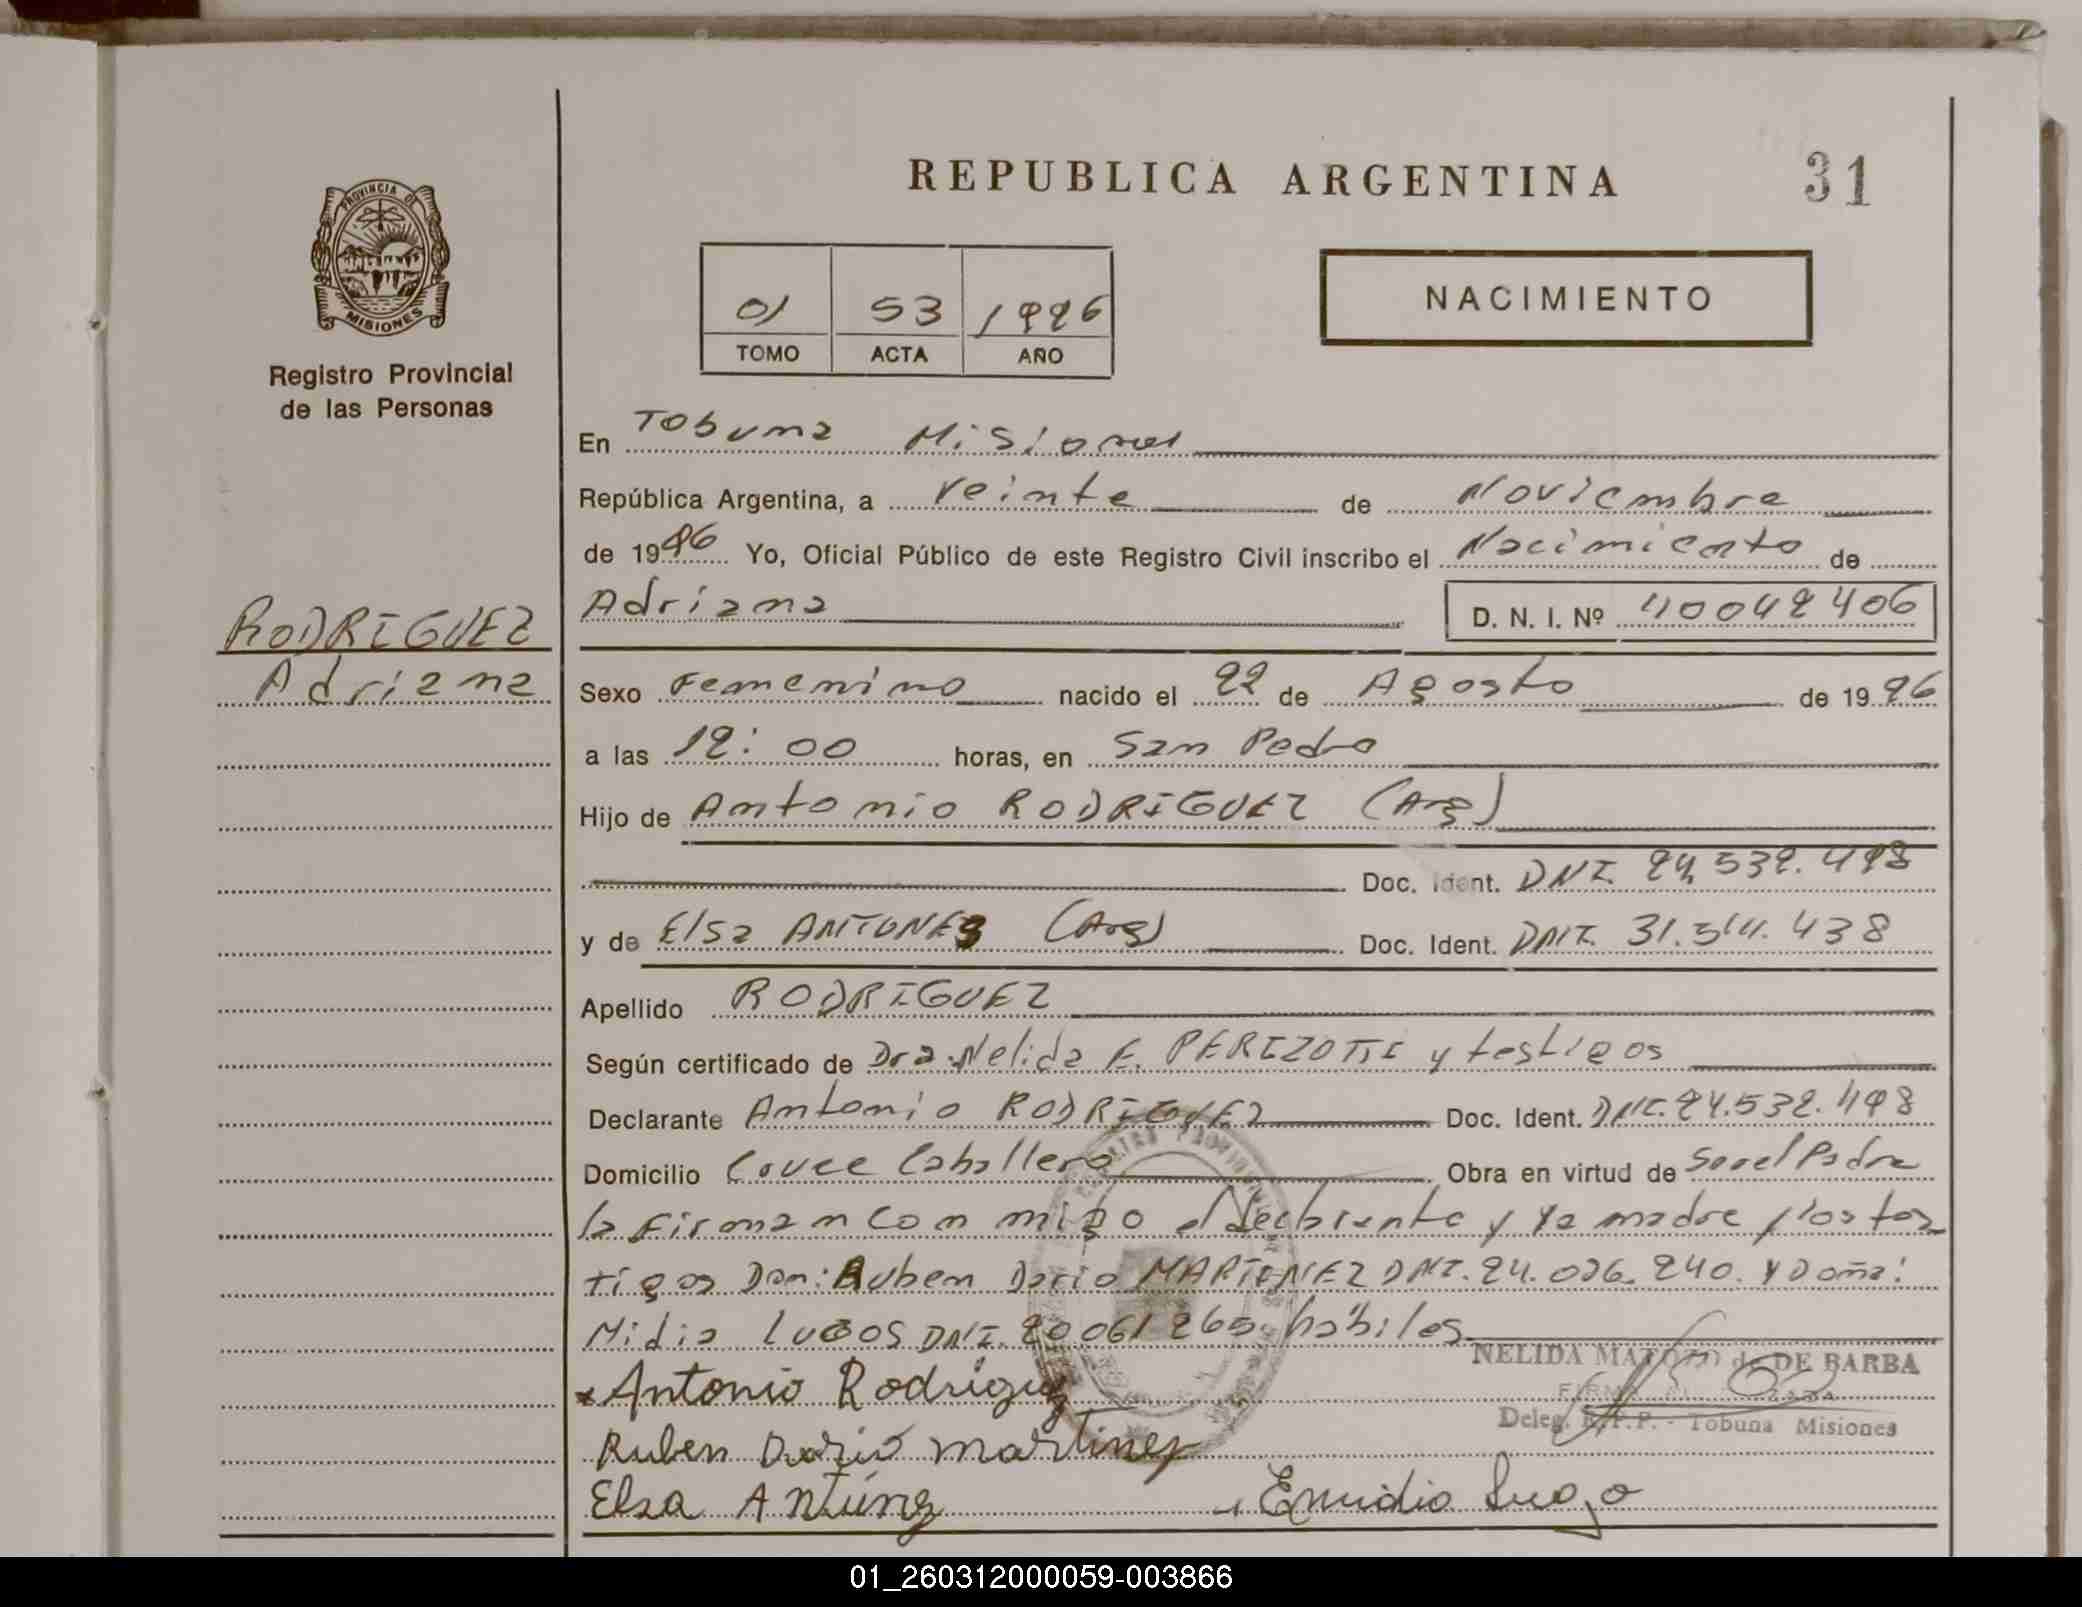 REPUBLICA ARGENTINA
31
PROVINCIA DE
MISIONES
Registro Provincial
de las Personas
01 53 1996
TOMO ACTA AÑO
NACIMIENTO
En Tobuna Misiones
República Argentina, a Veinte de Noviembre
de 1996 Yo, Oficial Público de este Registro Civil inscribo el Nacimiento de
Adriana D. N. I. Nº 40042406
RODRIGUEZ
Adriana
Sexo Femenino nacido el 22 de Agosto de 1996
a las 12:00 horas, en San Pedro
Hijo de Antonio RODRIGUEZ (Arg)
Doc. Ident. DNI. 24.532.498
y de Elsa ANTUNES (Arg) Doc. Ident. DNI. 31.514.438
Apellido RODRIGUEZ
Según certificado de Dra. Nelida E. PERIZOTTI y testigos
Declarante Antonio RODRIGUEZ Doc. Ident. DNI. 24.532.498
Domicilio Cruce Caballero Obra en virtud de Ser el Padre
la Firman con migo el Declarante y la madre y los tes
tigos Don: Ruben Dario MARTINEZ DNI. 24.026.240. y Doña:
Midia LUGOS DNI. 20 061 265 habiles
NELIDA DE BARBA
Deleg. R.P.P. - Tobuna Misiones
Antonio Rodriguez
Ruben Dario Martinez
Elsa Antúnez Emidio Lugo
01_260312000059-003866